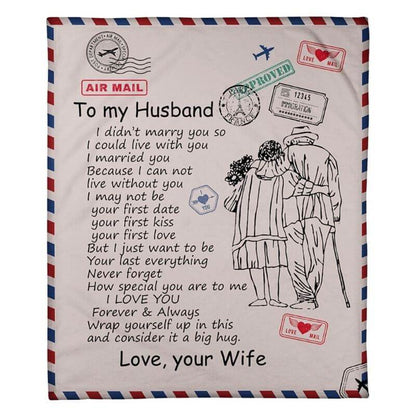 AIR MAIL
APPROVED
PARIS
FRANCE
LOVE MAIL
12345
To my Husband
I didn't marry you so
I could live with you
I married you
Because I can not
live without you
I may not be
your first date
your first kiss
your first love
But I just want to be
Your last everything
Never forget
How special you are to me
I LOVE YOU
Forever & Always
Wrap yourself up in this
and consider it a big hug.
Love, your Wife
LOVE MAIL